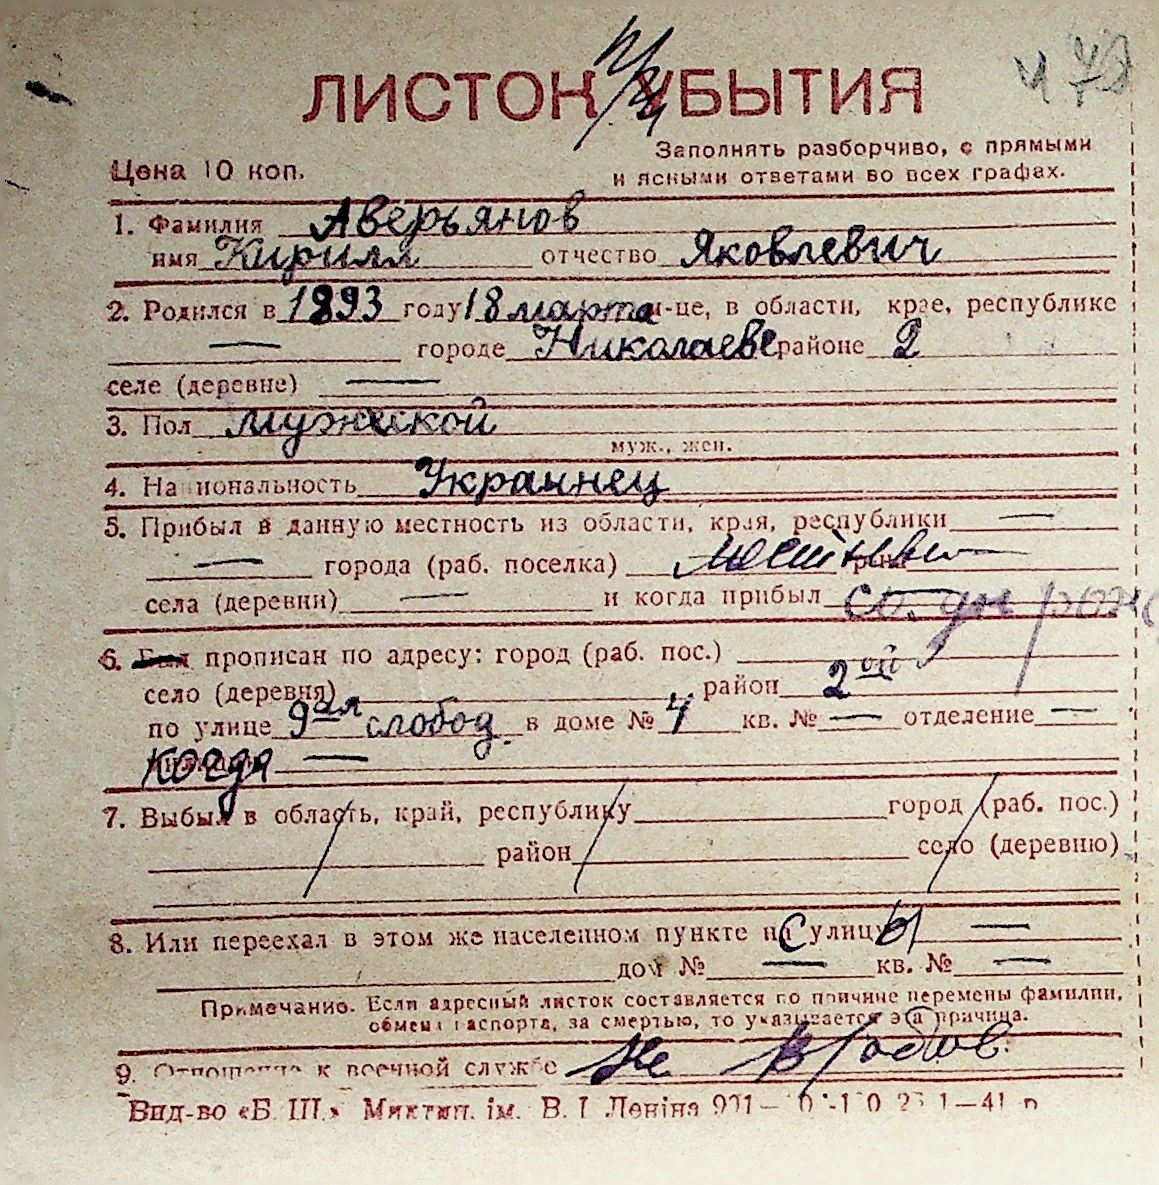 ЛИСТОК УБЫТИЯ
Цена 10 коп.
Заполнять разборчиво, с прямыми
и ясными ответами во всех графах.
1. Фамилия Аверьянов
имя Кирилл отчество Яковлевич
2. Родился в 1893 году 18 марта м-це, в области, крае, республике
— городе Николаеве районе 2
селе (деревне) —
3. Пол мужской
муж., жен.
4. Национальность Украинец
5. Прибыл в данную местность из области, края, республики —
— города (раб. поселка)
села (деревни) — и когда прибыл со. дн рож
6. Был прописан по адресу: город (раб. пос.)
село (деревня) район 2ой
по улице 9ая слобод. в доме № 4 кв. № — отделение —
когда —
7. Выбыл в область, край, республику город (раб. пос.)
район село (деревню)
8. Или переехал в этом же населенном пункте на С улицы —
дом № — кв. № —
Примечание. Если адресный листок составляется по причине перемены фамилии,
обмена паспорта, за смертью, то указывается эта причина.
9. Отношение к военной службе Не
Вид-во «Б. Ш.» Миктип. ім. В. І Леніна